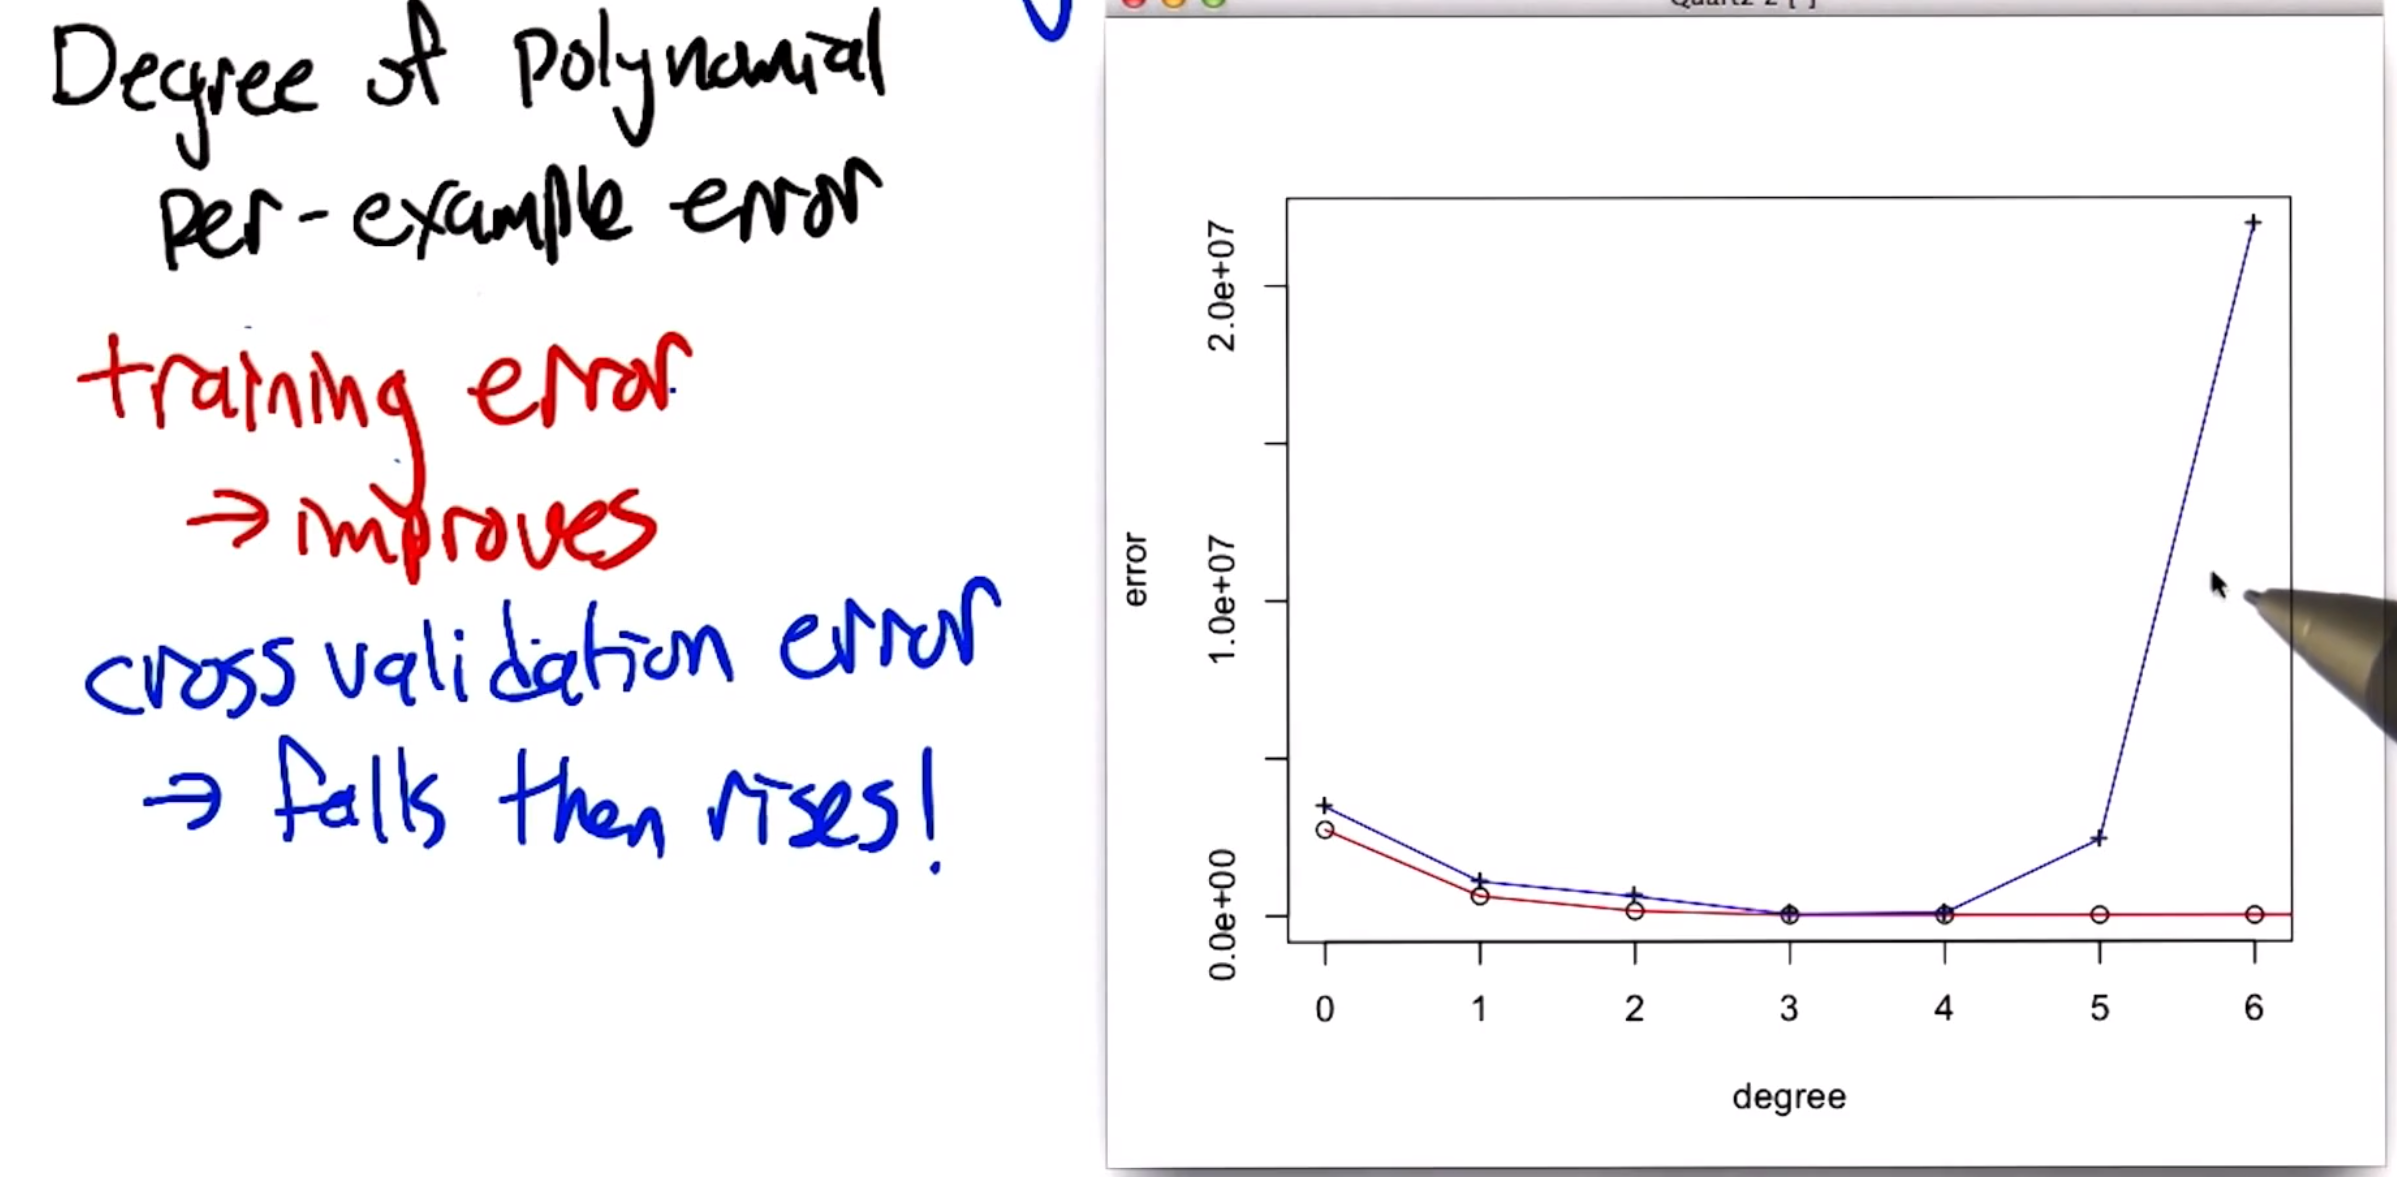 Degree of polynomial
per-example error
training error
→ improves
cross validation error
→ falls then rises!
error
2.0e+07
1.0e+07
0.0e+00
0 1 2 3 4 5 6
degree